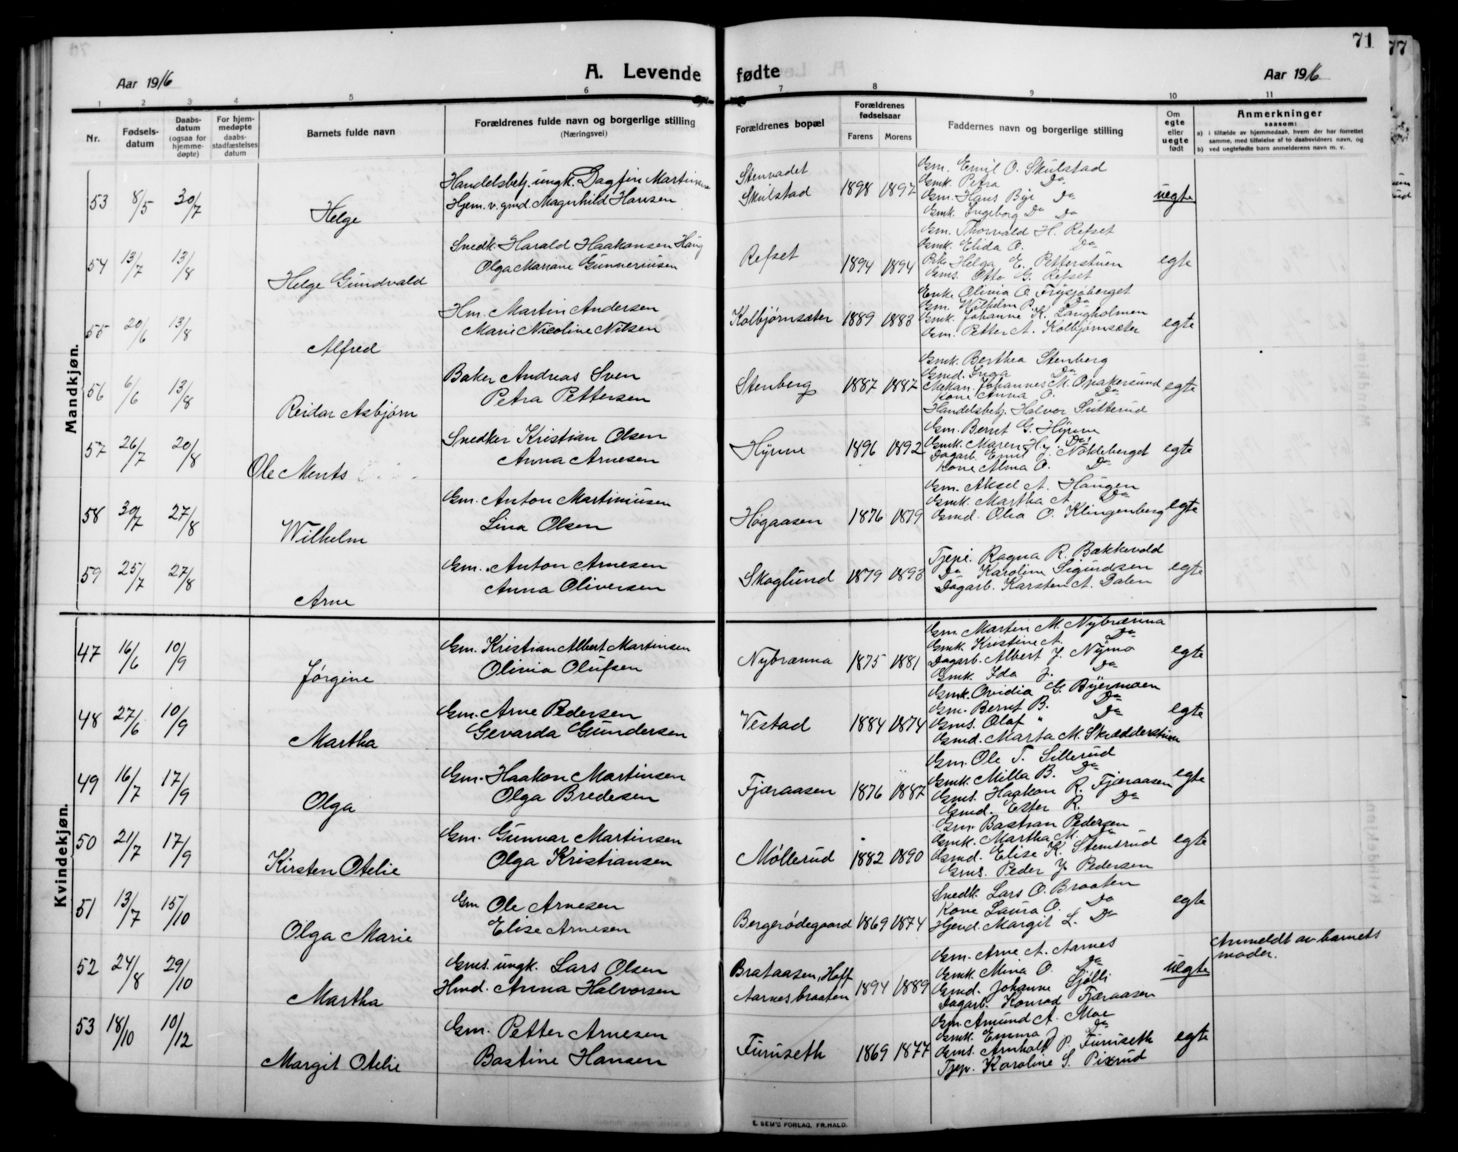 Aar 1916
A. Levende fødte
Aar 1916
71
77
1 2 3 4 5 6 7 8 9 10 11
Nr.
Fødsels-datum
Daabs-datum (ogsaa for hjemme-døpte)
For hjem-medøpte daabs-stadfæstelses datum
Barnets fulde navn
Forældrenes fulde navn og borgerlige stilling
(Næringsvei)
Forældrenes bopæl
Forældrenes fødselsaar
Farens Morens
Faddernes navn og borgerlige stilling
Om egte eller uegte født
Anmerkninger
saasom:
a) i tilfælde av hjemmedaab, hvem der har forrettet samme, med tilføielse af to daabsvidners navn, og
b) ved uegtefødte barn anmelderens navn m. v.
Mandkjøn.
53 8/5 30/7 Helge
Handelsbetj. ungk. Dagfin Martinsen
Hjem. v. gmd. Magnhild Hansen
Stenvadet
Skulstad
1898 1897
Gm. Emil O. Skulstad
Gmk. Petra Do
Gm. Hans Bye Do
Gmk. Ingeborg Do Do
uegte
54 13/7 13/8 Helge Gundvald
Snedk. Harald Haakonsen Haug
Olga Mariane Gunneriusen
Refset
1894 1894
Gm. Thorvald H. Refset
Gmk. Elida O. Do
Pike Helga E. Petterstuen
Gms. Otto G. Refset
egte
55 20/6 13/8 Alfred
Hm. Martin Andersen
Marie Nicoline Nilsen
Kolbjørnsæter
1889 1883
Enke Olivia O. Frysjøberget
Gm. Wilhelm P. Do
Gmk. Johanne K. Langholmen
Gm. Petter A. Kolbjørnsæter
egte
56 6/6 13/8 Reidar Asbjørn
Baker Andreas Sven
Petra Pettersen
Stenberg
1887 1887
Gmk. Berthea Stenberg
Gmd. Inga Do
Mekan. Johannes M. Opakersund
Kone Anna O. Do
Handelsbetj. Halvor Sutterud
egte
57 26/7 20/8 Ole Ments
Snedker Kristian Olsen
Anna Arnesen
Hyrme
1896 1892
Gm. Bernt G. Hyrme
Gmk. Maren Hy. Do
Dagarb. Emil J. Nokleberget
Kone Alma O. Do
egte
58 30/7 27/8 Wilhelm
Gm. Anton Martiniusen
Lina Olsen
Høgaasen
1876 1879
Gm. Aksel A. Haugen
Gmk. Martha A. Do
Gmd. Olea O. Klingenberg
egte
59 25/7 27/8 Arne
Gm. Anton Arnesen
Anna Oliversen
Skoglund
1879 1893
Tjepi. Ragna R. Bakkevold
Do Karoline Sigurdsen
Dagarb. Karsten A. Dalen
egte
Kvindekjøn.
47 16/6 10/9 Jørgine
Gm. Kristian Albert Martinsen
Olivia Olufsen
Nybrænna
1875 1881
Gm. Marten M. Nybrænna
Gmk. Kristine A. Do
Dagarb. Albert J. Nymo
Gmk. Ida J. Do
egte
48 27/6 10/9 Martha
Gm. Arne Pedersen
Gevarda Gundersen
Vestad
1884 1874
Gmk. Ovidia G. Byermoen
Gm. Bernt B. Do
Gms. Olaf " Do
Gmd. Marta M. Skrædderstuen
egte
49 16/7 17/9 Olga
Gm. Haakon Martinsen
Olga Bredesen
Fjæraasen
1876 1887
Gm. Ole T. Sillerud
Gmk. Milla B. Do
Gms. Haakon R. Fjæraasen
Gmd. Ester R. Do
egte
50 21/7 17/9 Kirsten Otelie
Gm. Gunvar Martinsen
Olga Kristiansen
Møllerud
1882 1890
Gm. Bastian Pedersen
Gmk. Martha M. Do
Gmd. Elise K. Stemsrud
Gms. Peder J. Pedersen
egte
51 13/7 15/10 Olga Marie
Gm Ole Arnesen
Elise Arnesen
Bergerødegaard
1869 1874
Snedk. Lars O. Braaten
Kone Laura O. Do
Hjemd. Margit L. Do
egte
52 24/8 29/10 Martha
Gms. ungk. Lars Olsen
Hmd. Anna Halvorsen
Brataasen, Hoff
Aarnesbraaten
1894 1889
Gm. Arne A. Aarnes
Gmk. Mina O. Do
Gmd. Johanne Sjølli
Dagarb. Konrad Fjæraasen
uegte
Anmeldt av barnets
moder.
53 18/10 10/12 Margit Otelie
Gm. Petter Arnesen
Bastine Hansen
Furuseth
1869 1877
Gm. Amund A. Moe
Gmk. Emma J. Do
Gms. Arnholt P. Furuseth
Tjep. Karoline S. Pixrud
egte
E. SEM'S FORLAG, FR.HALD.